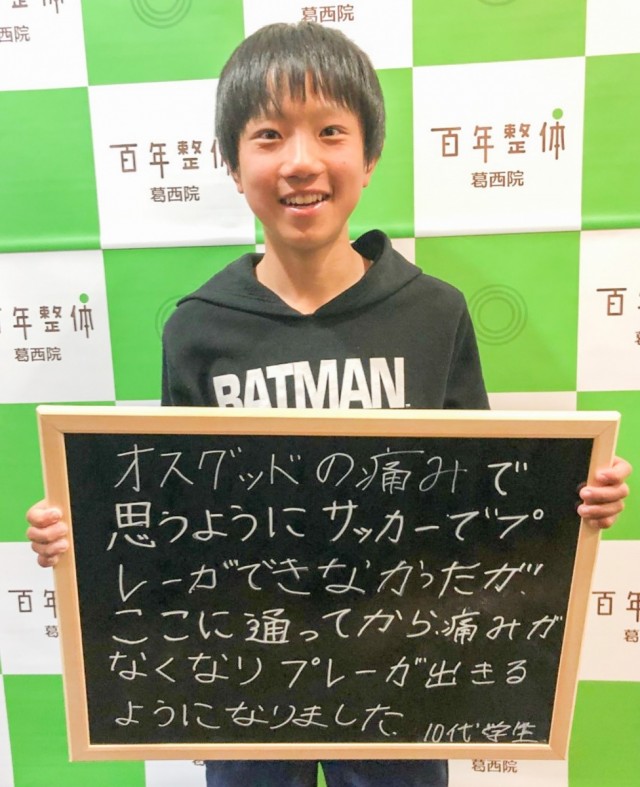 百年整体
葛西院
百年整体
葛西院
百年整体
葛西院
百年整体
葛西院
BATMAN
オスグッドの痛みで
思うようにサッカーでプ
レーができなかったが、
ここに通ってから痛みが
なくなりプレーが出きる
ようになりました。
10代学生
葛西院